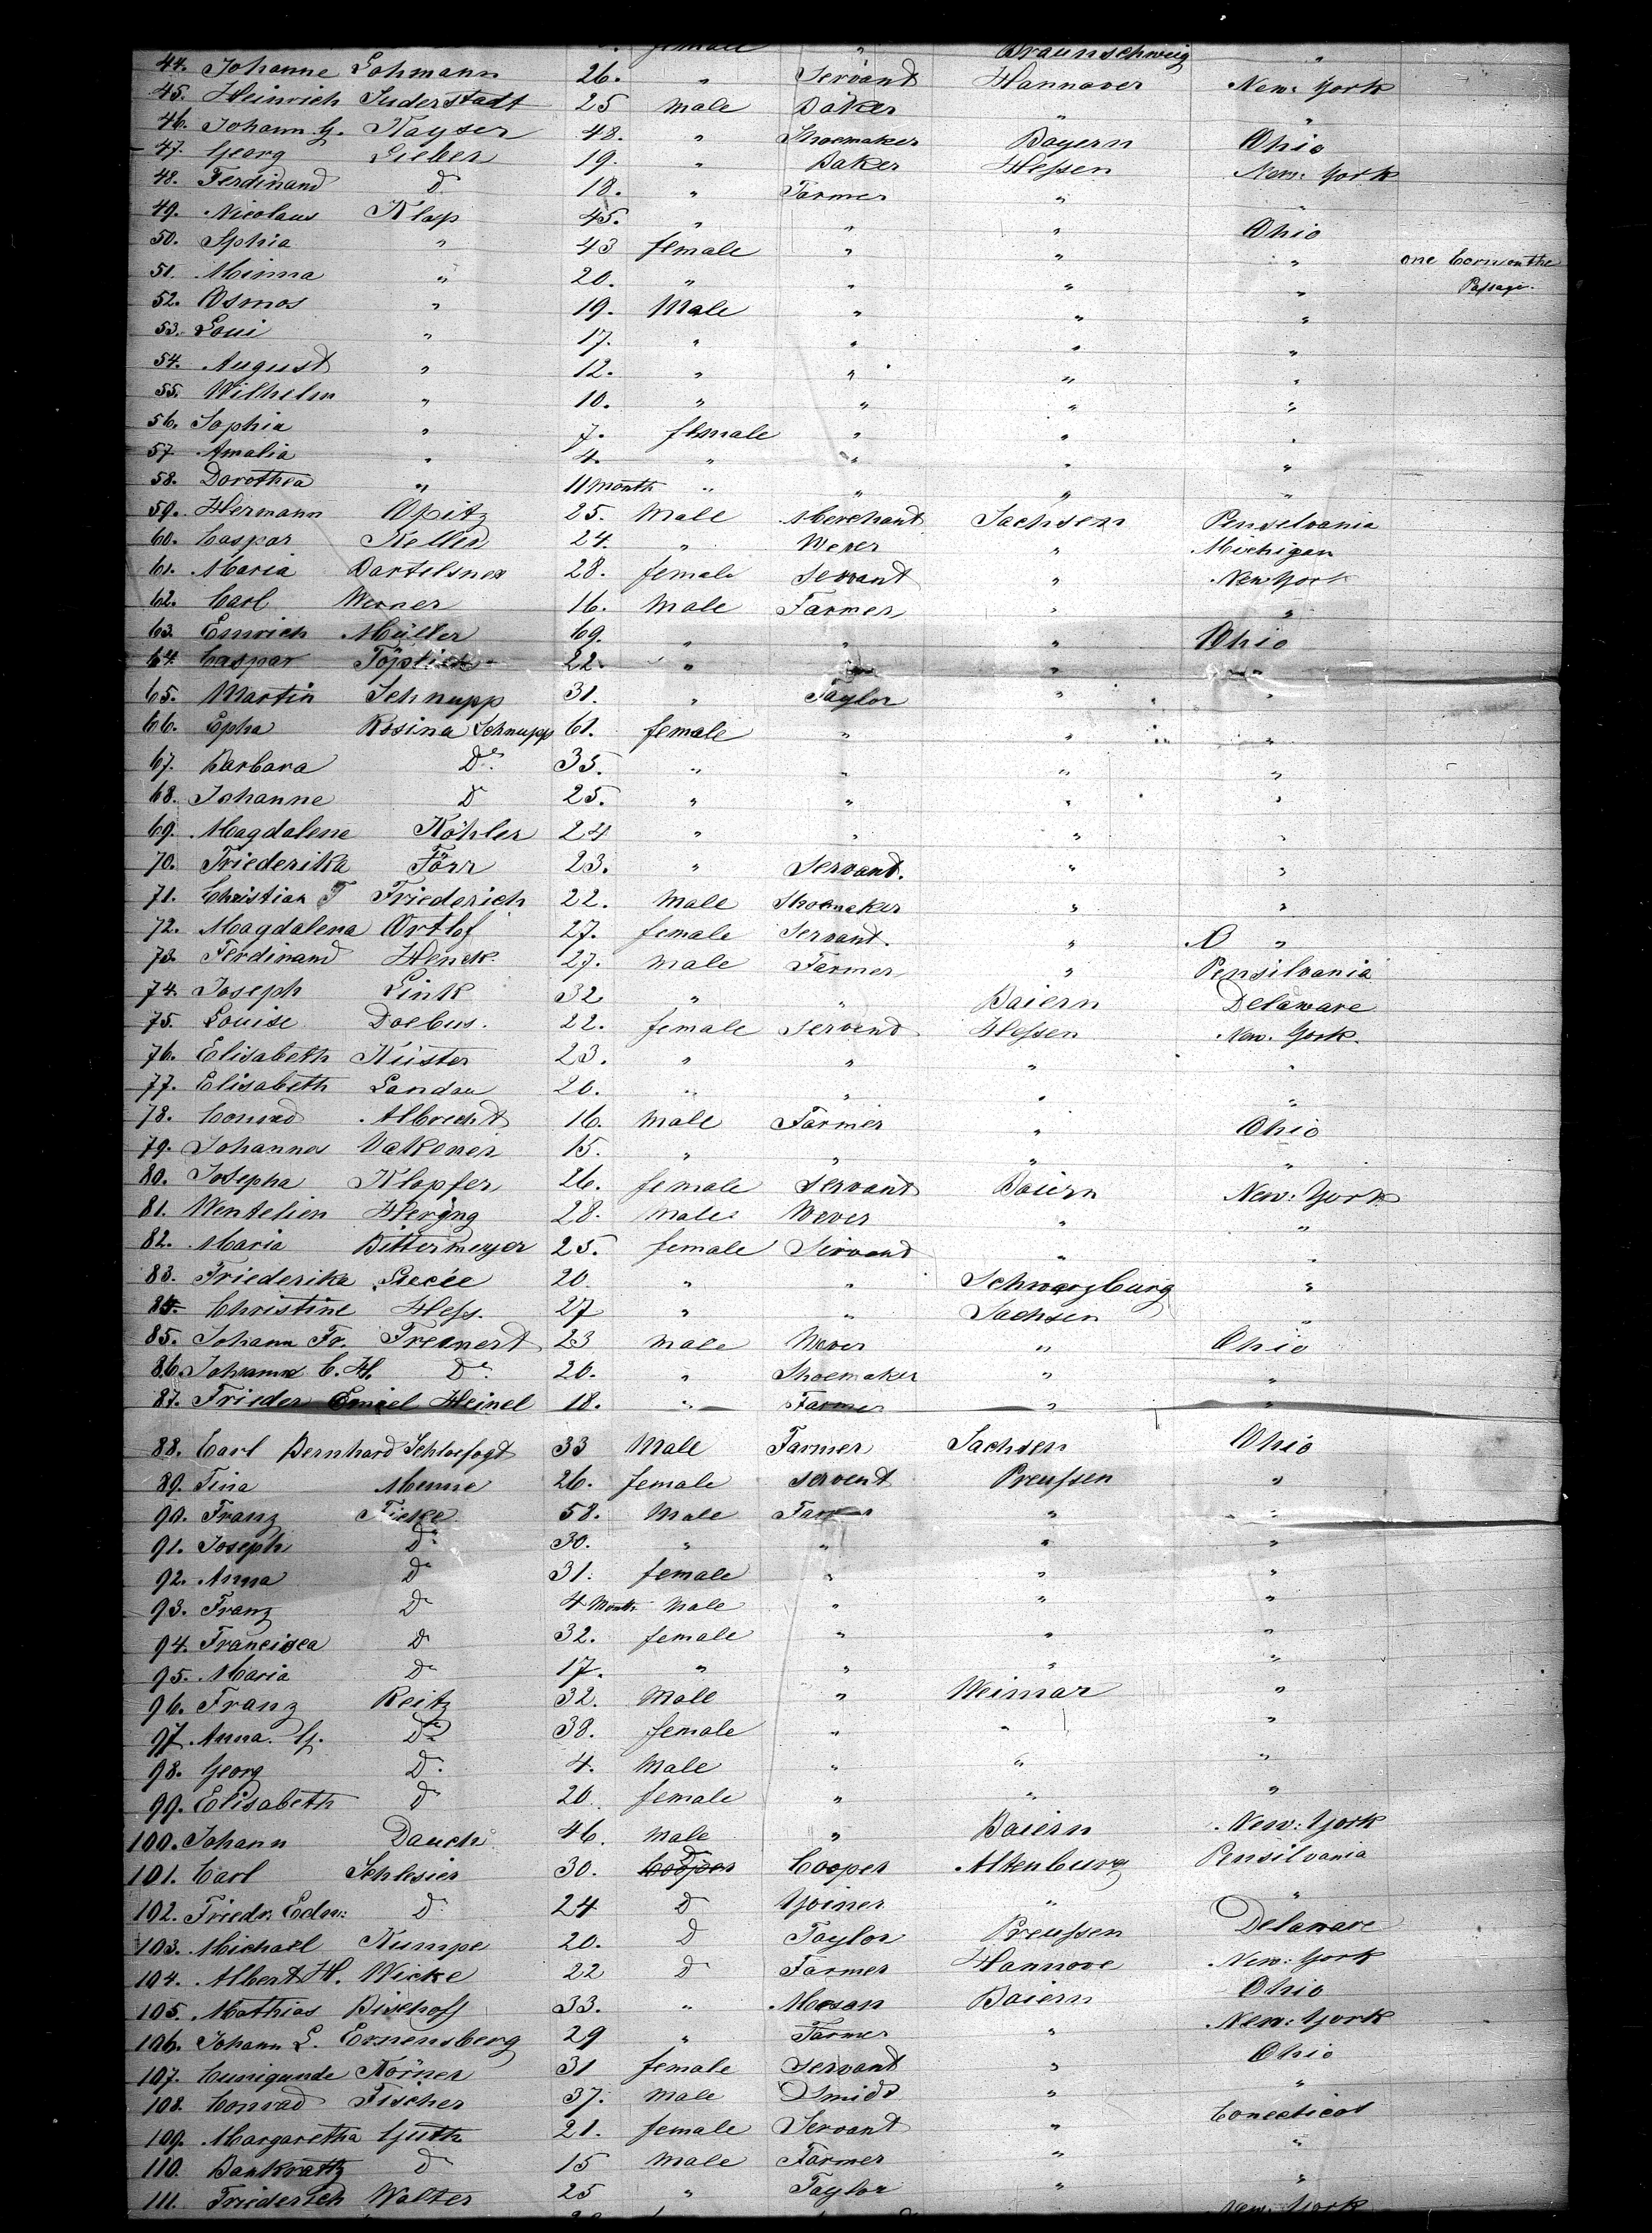 female " Braunschweig "
44. Johanne Lohmann 26. " Servand Hannover New: York
45. Heinrich Suderstadt 25 male Baker " "
46. Johann G. Kayser 48. " Shoemaker Bayern Ohio
47. Georg Lieber 19. " Baker Hessen New: York
48. Ferdinand Do 18. " Farmer " "
49. Nicolaus Klap 45. " " " Ohio
50. Sphia " 43 female " " " one born on the
51. Minna " 20. " " " " Passage.
52. Osmos " 19. Male " " "
53. Loui " 17. " " " "
54. August " 12. " " " "
55. Wilhelm " 10. " " " "
56. Sophia " 7. female " " "
57 Amalia " 4. " " " "
58. Dorothea " 11 month " " " "
59. Hermann Opitz 25. Male Merchant Sachsen Penselvania
60. Caspar Keller 24. " Wever " Michigan
61. Maria Dartelsner 28. female Servant " New York
62. Carl Werner 16. Male Farmer " "
63. Emrich Müller 69. " " " Ohio
64. Caspar 22. " " "
65. Martin Schnupp 31. " Taylor " "
66. Epha Rosina Schnupp 61. female " " "
67. Barbara Do 35. " " " "
68. Johanne D 25. " " " "
69. Magdalene Köhler 24 " " " "
70. Friederika Förr 23. " Servant. " "
71. Christian F Friederich 22. Male Shoemaker " "
72. Magdalena Ortlof 27. female Servant. " O "
73. Ferdinand Henck. 27. male Farmer " Pensilvania
74. Joseph Link 32 " " Baiern Delaware
75. Louise Doebus. 22. female Servend Hessen New. York.
76. Elisabeth Küster 23. " " " "
77. Elisabeth Landau 20. " " " "
78. Conrad Albrecht 16. Male Farmer " Ohio
79. Johannes 15. " " " "
80. Josepha Klopfer 26. female Servant Baiern New: York
81. Wentelien Hering 28. males Wever " "
82. Maria Bittermeyer 25. female Servand " "
83. Friederika 20. " " Schwarzburg "
84. Christine Hess. 27 " " Sachsen "
85. Johann Fr. Freinert 23 male Wever " Ohio
86. Johann C. H. Do 20. " Shoemaker " "
87. Frieder Emiel Heinel 18. " Farmer " "
88. Carl Bernhard Schloefogt 33 Male Farmer Sachsen Ohio
89. Tina Menne 26. female servent Preussen "
90. Franz Ficke 58. Male Farmer " "
91. Joseph Do 30. " " " "
92. Anna Do 31. female " " "
93. Franz Do 4 Month male " " "
94. Francisca D 32. female " " "
95. Maria Do 17. " " " "
96. Franz Reitz 32. Male " Weimar "
97 Anna. G. Do 38. female " " "
98. Georg D. 4. Male " " "
99. Elisabeth D 20 female " " "
100. Johann Dauch 46. male " Baiern New: York
101. Carl Schlesier 30. Cooper D Cooper Altenburg Pensilvania
102. Friedr. Edm: D 24 D Yoiner " "
103. Michael Kumpe 20. D Taylor Preussen Delaware
104. Albert H. Wicke 22 D Farmer Hannove New: York
105. Mathias Bischoff 33. " Mason Baiern Ohio
106. Johann L. Ernensberg 29 " Farmer " New: York
107. Cunigunde Körner 31 female servant " Ohio
108. Conrad Fischer 37. male Smidt " "
109. Margaretha Guth 21. female Servant " Conecticot
110. Bankrattz D 15 male Farmer " "
111. Friederich Walter 25 " Taylor " "
New: York